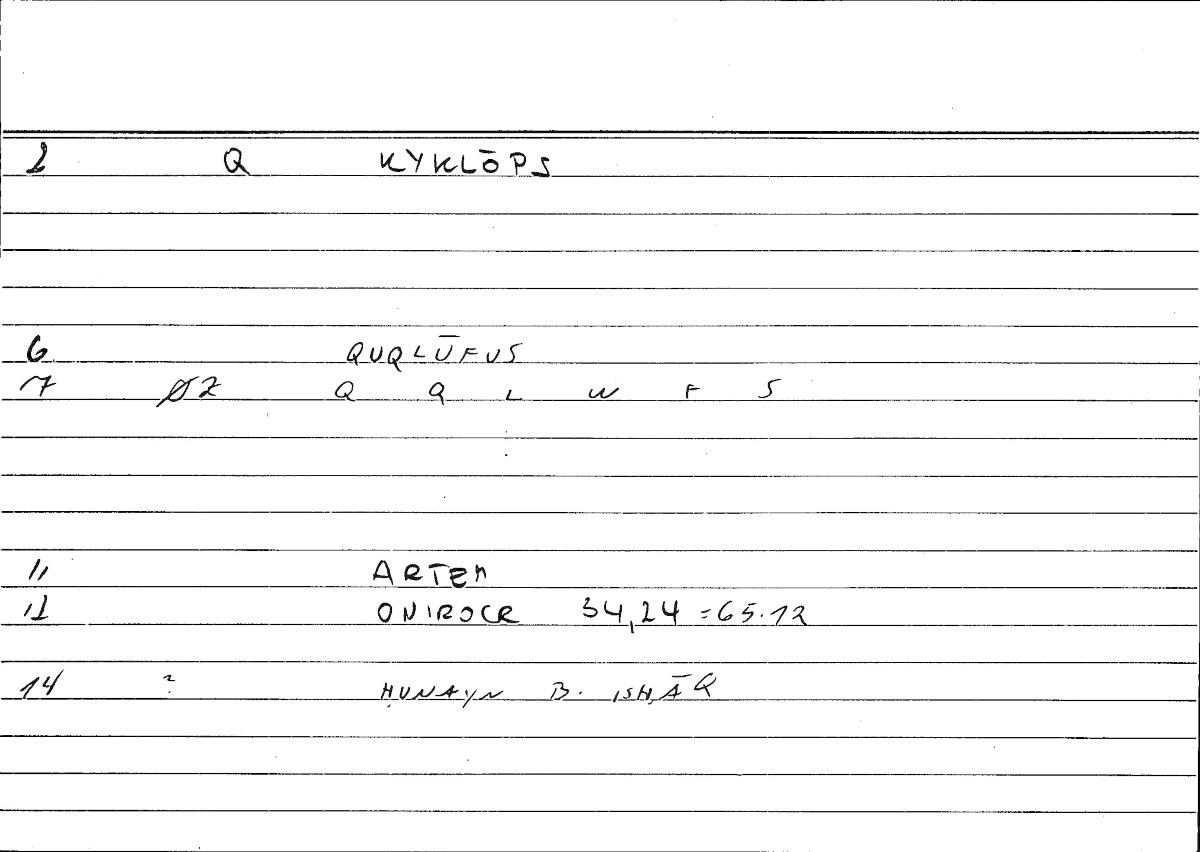 2 Q KYKLŌPS
6 QUQLŪFUS
7 ØZ Q Q L W F S
11 ARTEM
12 ONIROCR 34,24 = 65.12
14 ? ḤUNAYN B. ISḤĀQ